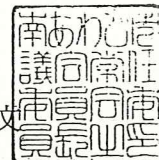 南あわじ市
議会常任
委員会委
員長之印
文